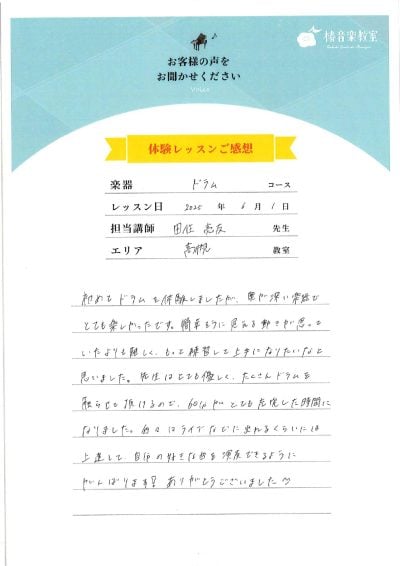 椿音楽教室
お客様の声を
お聞かせください
Voice
体験レッスンご感想
楽器 ドラム コース
レッスン日 2025 年 6 月 1 日
担当講師 先生
エリア 高幡 教室
初めてドラムを体験しましたが、奥が深い楽器で
とても楽しかったです。簡単そうに見える動きが思って
いたよりも難しく、もっと練習して上手になりたいなと
思いました。先生はとても優しく、たくさんドラムを
触らせて頂けるので、60分間とても充実した時間に
なりました。 ライブなどに出れるくらいには
上達して、自分の好きな曲を演奏できるように
がんばります！ ありがとうございました♡